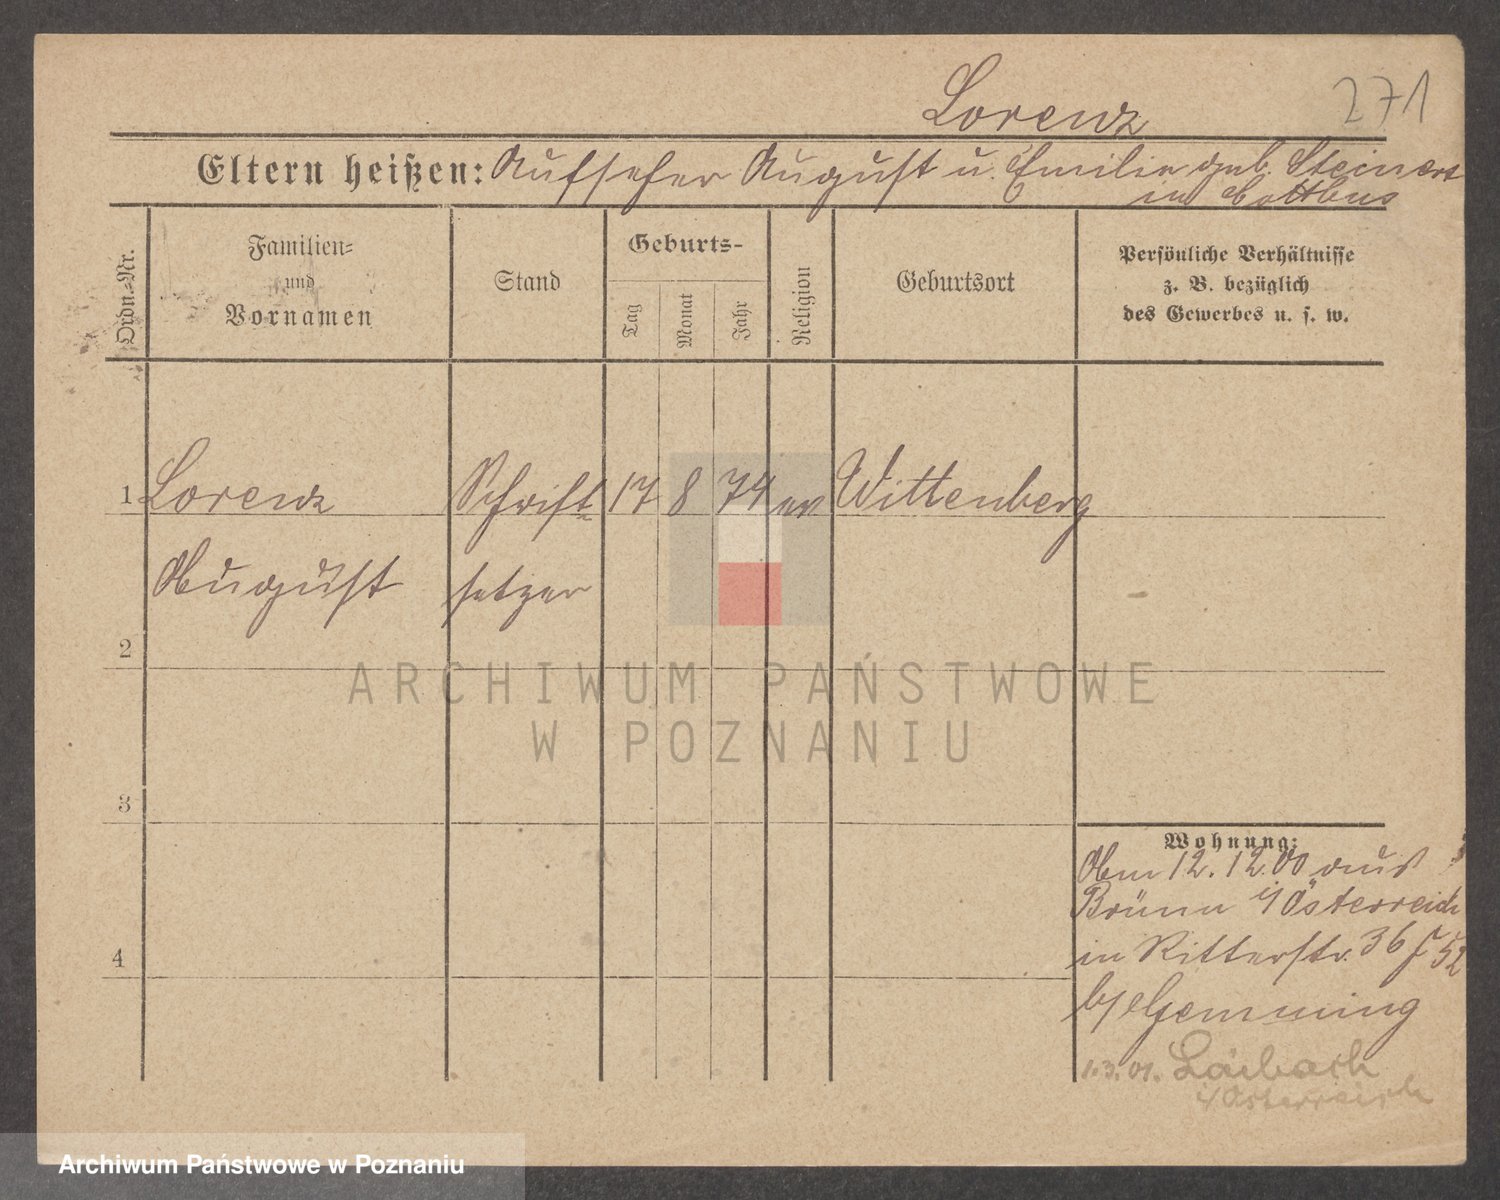 Lorenz
271
Eltern heißen: Aufseher August u. Emilie geb. Steinert
in Cottbus
Ordn.-Nr.
Familien-
und
Vornamen
Stand
Geburts-
Tag
Monat
Jahr
Religion
Geburtsort
Persönliche Verhältnisse
z. B. bezüglich
des Gewerbes u. s. w.
1 Lorenz Schrift- 17 8 74 ev Wittenberg
August setzer
2
3
4
Wohnung:
Am 12.12.00 aus
Brünn i/Österreich
in Ritterstr. 36
b/ Hemming
1.3.01. Laibach
i/Österreich
ARCHIWUM PAŃSTWOWE
W POZNANIU
Archiwum Państwowe w Poznaniu